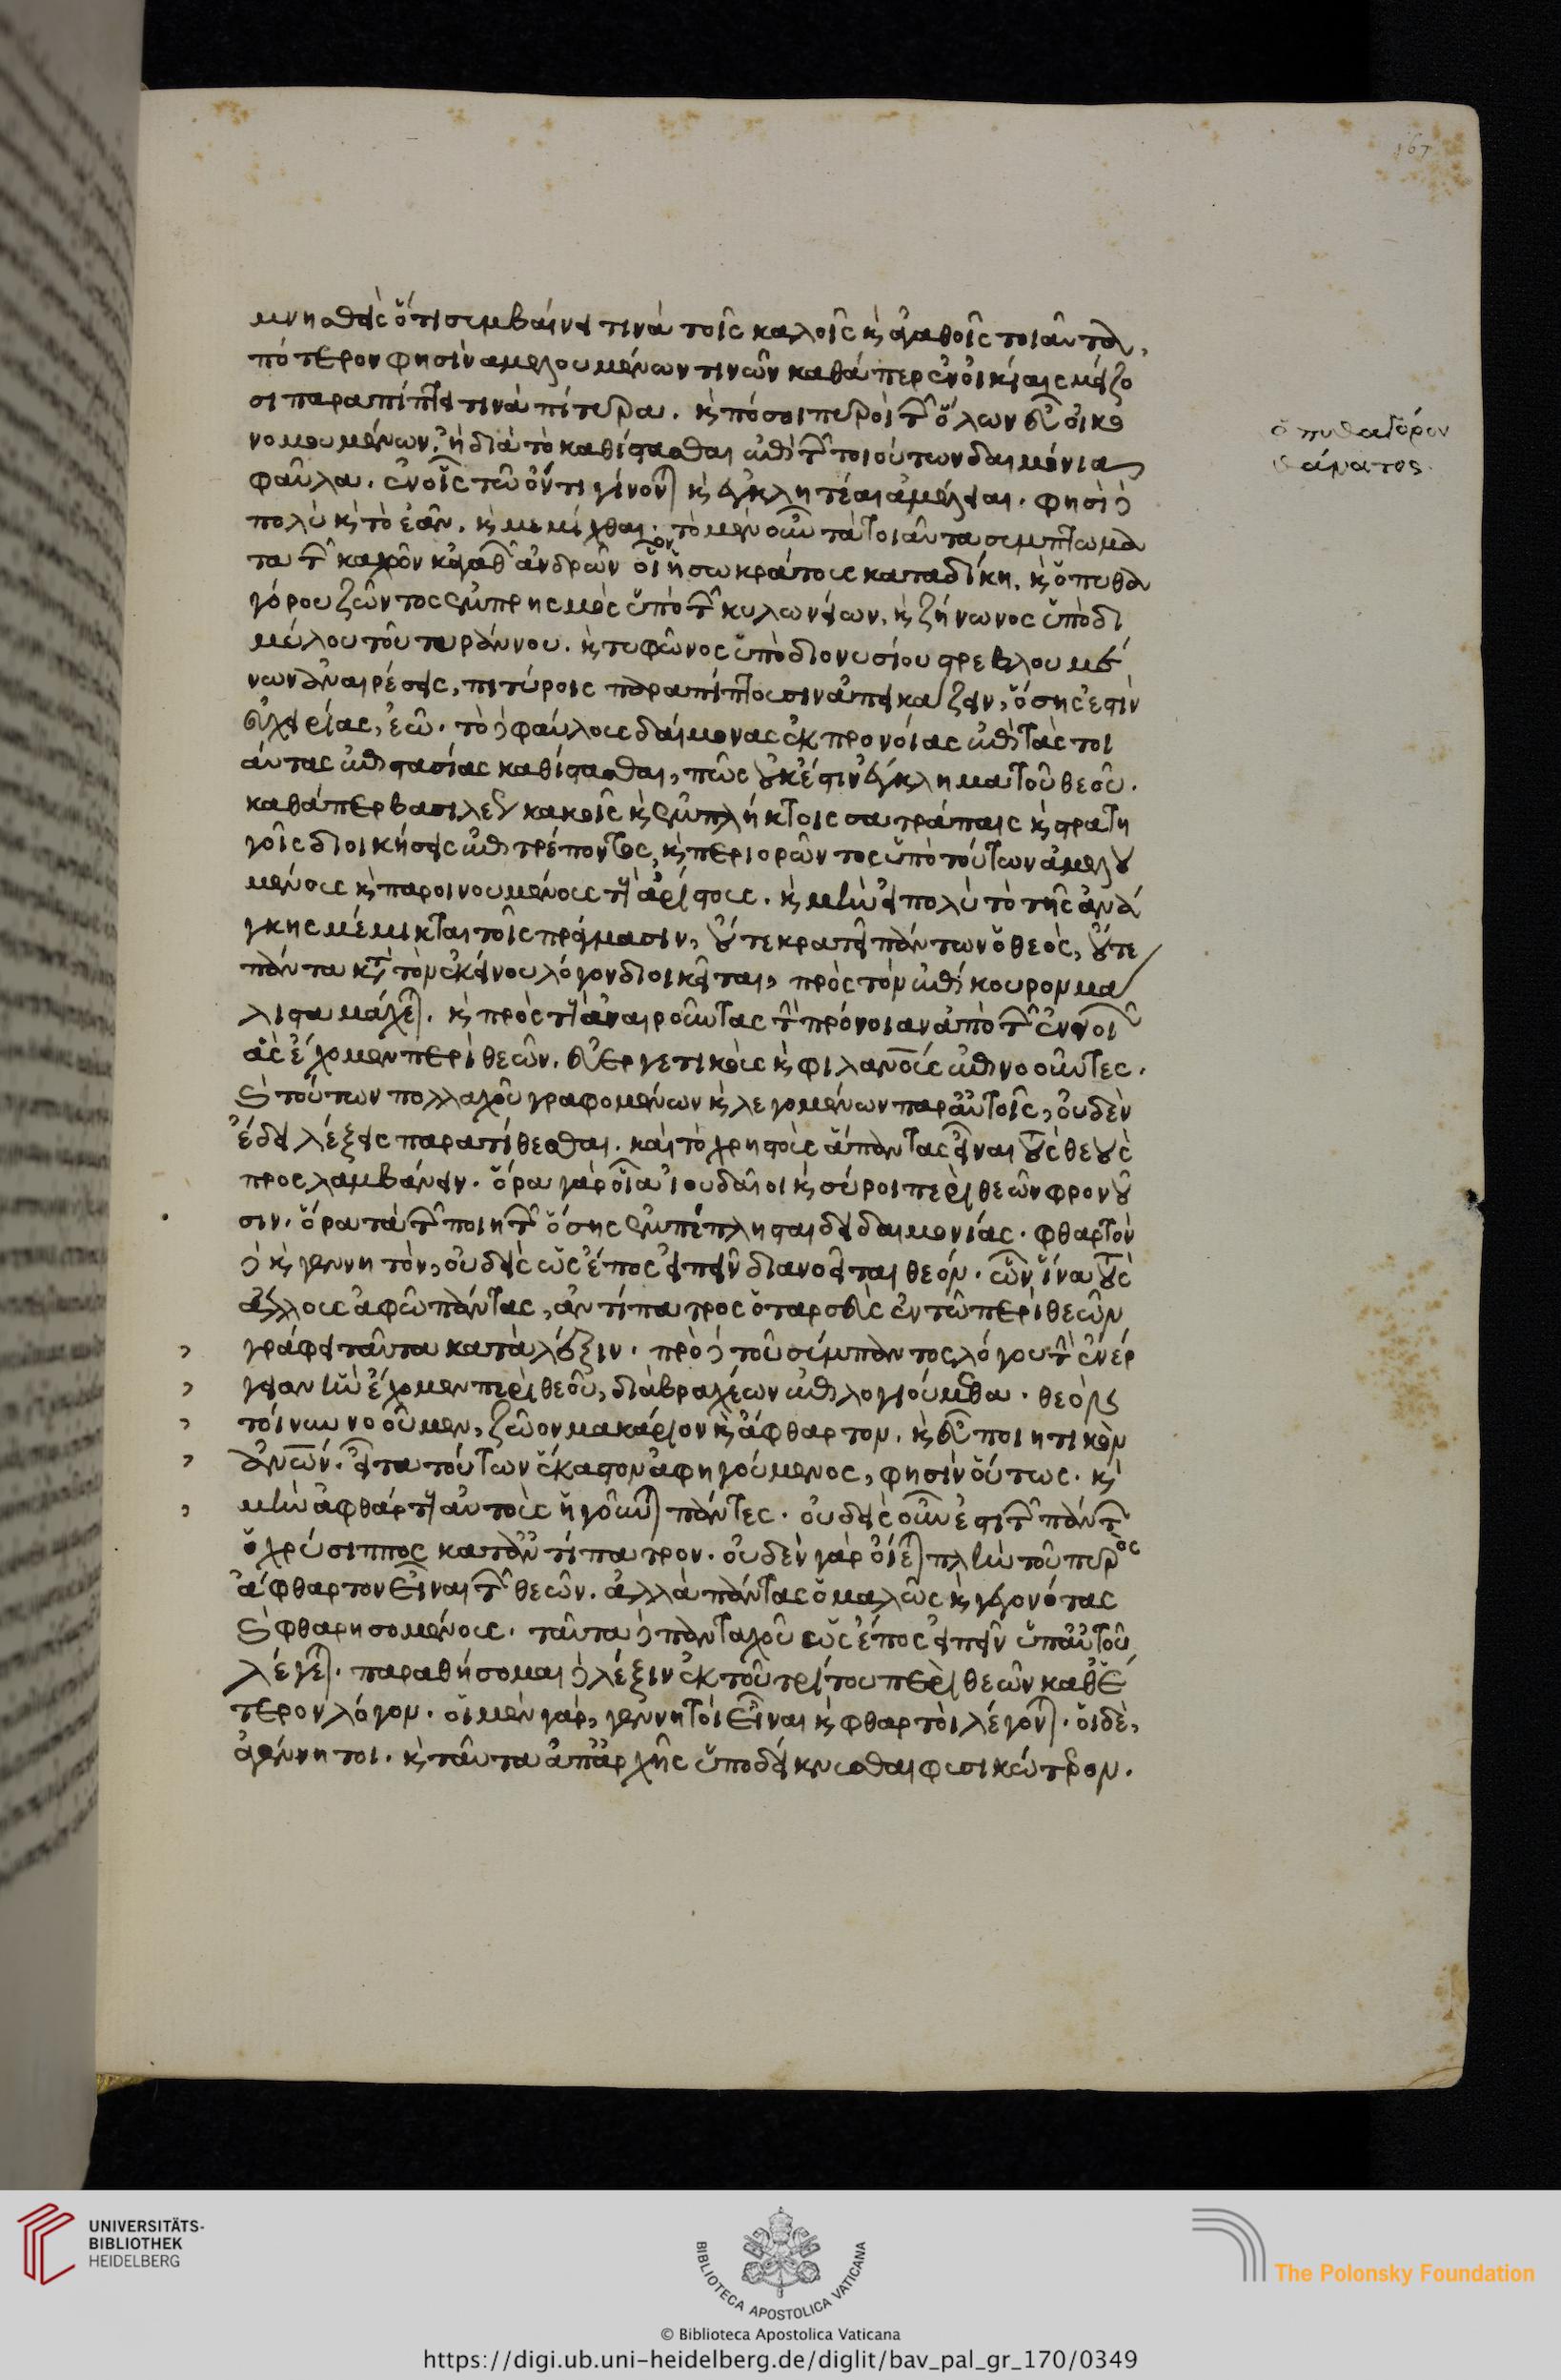 167
μνησθεὶς ὅτι συμβαίνει τινὰ τοῖς καλοῖς κ ἀγαθοῖς τοιαῦτα,
πότερον φησὶν ἀμελουμένων τινῶν καθάπερ ἐν οἰκίαις μείζο
σι παραπίπτει τινὰ πίτυρα. κ πόσοι πυροὶ τῶν ὅλων εὖ οἰκο
νομουμένων, ἢ διὰ τὸ καθίστασθαι ἐπὶ τῶν τοιούτων δαιμόνια
φαῦλα. ἐν οἷς τῶ ὄντι γίνονται κ ἐγκλητέαι ἀμέλειαι. φησὶ δὲ
πολὺ κ τὸ ἐᾶν. κ μεμίχθαι. τὸ μὲν οὖν τὰ τοιαῦτα συμπτώμα
τα τῶν καλῶν κἀγαθῶν ἀνδρῶν οἷον ἡ σωκράτους καταδίκη, κ ὁ πυθα
γόρου ζῶντος ἐμπρησμὸς ὑπὸ τῶν κυλωνείων, κ ζήνωνος ὑπὸ δι
μύλου τοῦ τυράννου. κ τυφῶνος ὑπὸ διονυσίου στρεβλουμέ
νων ἀναιρέσεις, πιτύροις παραπίπτουσιν ἀπεικάζειν, ὅσης ἐστὶν
εὐχερείας, ἐῶ. τὸ δὲ φαύλους δαίμονας ἐκ προνοίας ἐπὶ τὰς τοι
αύτας ἐπιστασίας καθίστασθαι, πῶς οὐκ ἔστιν ἔγκλημα τοῦ θεοῦ.
καθάπερ βασιλέως κακοῖς κ ἐμπλήκτοις σατράπαις κ στρατη
γοῖς διοικήσεις ἐπιτρέποντος, κ περιορῶντος ὑπὸ τούτων ἀμελου
μένους κ παροινουμένους τοὺς ἀρίστους. κ μὴν εἰ πολὺ τὸ τῆς ἀνά
γκης μέμικται τοῖς πράγμασιν, οὔτε κρατεῖ πάντων ὁ θεὸς, οὔτε
πάντα κατὰ τὸν ἐκείνου λόγον διοικεῖται, πρὸς τὸν ἐπίκουρον μά
λιστα μάχεται. κ πρὸς τοὺς ἀναιροῦντας τὴν πρόνοιαν ἀπὸ τῶν ἐννοιῶν
ἃς ἔχομεν περὶ θεῶν. εὐεργετικοὺς κ φιλανους ἐπινοοῦντες.
κ τούτων πολλαχοῦ γραφομένων κ λεγομένων παρ' αὐτοῖς, οὐδὲν
ἔδει λέξεις παρατίθεσθαι. καίτοι χρηστοὺς ἅπαντας εἶναι τοὺς θεοὺς
προςλαμβάνειν. ὅρα γὰρ οἷα ἰουδαῖοι κ σύροι περὶ θεῶν φρονοῦ
σιν. ὅρα τὰ τῶν ποιητῶν ὅσης ἐμπέπλησται δειδαιμονίας. φθαρτὸν
δὲ κ γεννητὸν, οὐδεὶς ὡς ἔπος εἰπεῖν διανοεῖται θεόν. ὧν ἵνα τοὺς
ἄλλους ἀφῶ πάντας, ἀντίπατρος ὁ ταρσεὺς ἐν τῶ περὶ θεῶν
γράφει ταῦτα κατὰ λέξιν. πρὸ δὲ τοῦ σύμπαντος λόγου τὴν ἐνέρ
γειαν ἣν ἔχομεν περὶ θεοῦ, διὰ βραχέων ἐπιλογιούμεθα. θεὸν
τοίνυν νοοῦμεν, ζῶον μακάριον κ ἄφθαρτον. κ εὐποιητικὸν
ἀνων. εἶτα τούτων ἕκαστον ἀφηγούμενος, φησὶν οὕτως. κ
μὴν ἀφθάρτους αὐτοὺς ἡγοῦνται πάντες. οὐδεὶς οὖν ἐστὶ τῶν πάντων
ὁ χρύσιππος κατ' ἀντίπατρον. οὐδὲν γὰρ οἴεται πλὴν τοῦ πυρὸς
ἄφθαρτον εἶναι τῶν θεῶν. ἀλλὰ πάντας ὁμαλῶς κ γεγονότας
κ φθαρησομένους. ταῦτα δὲ πανταχοῦ ὡς ἔπος εἰπεῖν ὑπ' αὐτοῦ
λέγεται. παραθήσομαι δὲ λέξιν ἐκ τοῦ τρίτου περὶ θεῶν καθ' ἕ
τερον λόγον. οἱ μὲν γὰρ, γεννητοὶ εἶναι κ φθαρτοὶ λέγονται. οἱ δὲ,
ἀγέννητοι. κ ταῦτα ἀπ' ἀρχῆς ὑποδείκνυσθαι φυσικώτερον.
ὁ πυθαγόρου
θάνατος.
UNIVERSITÄTS-
BIBLIOTHEK
HEIDELBERG
BIBLIOTECA APOSTOLICA VATICANA
The Polonsky Foundation
© Biblioteca Apostolica Vaticana
https://digi.ub.uni-heidelberg.de/diglit/bav_pal_gr_170/0349